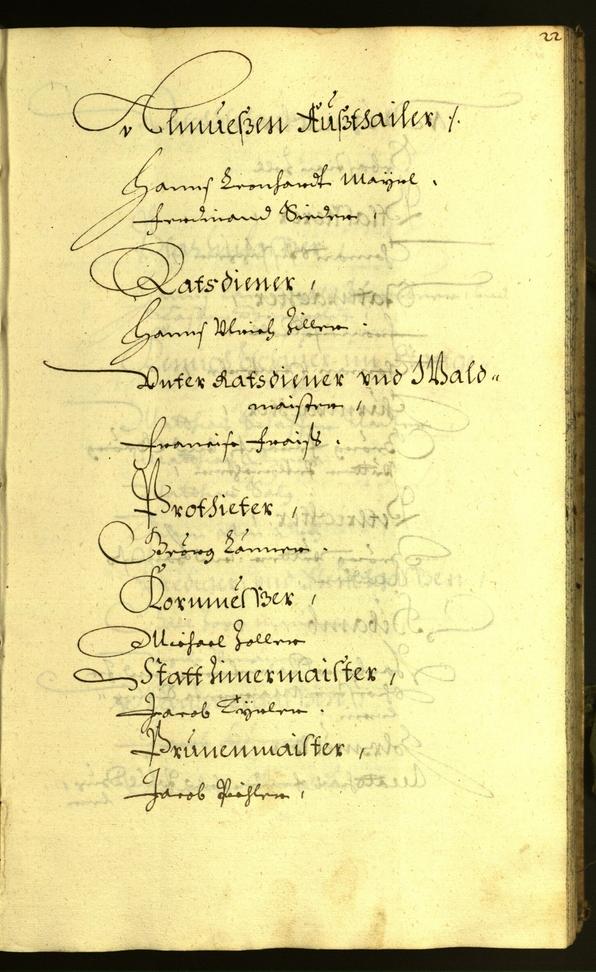 22
Almueßen Außthailer /.
Hanns Leonhardt Mayrl .
Ferdinand Sieder /
Ratsdiener /
Hanns Ulrich Ziller .
Vnter Ratsdiener vnd Wald=
maister /
Francisc Fraiß .
Prothieter /
Geörg Lanner .
Kornmeßer /
Michael Zoller
Statt Zimermaister /
Jacob Tyrler .
Prunenmaister /
Jacob Pichler /